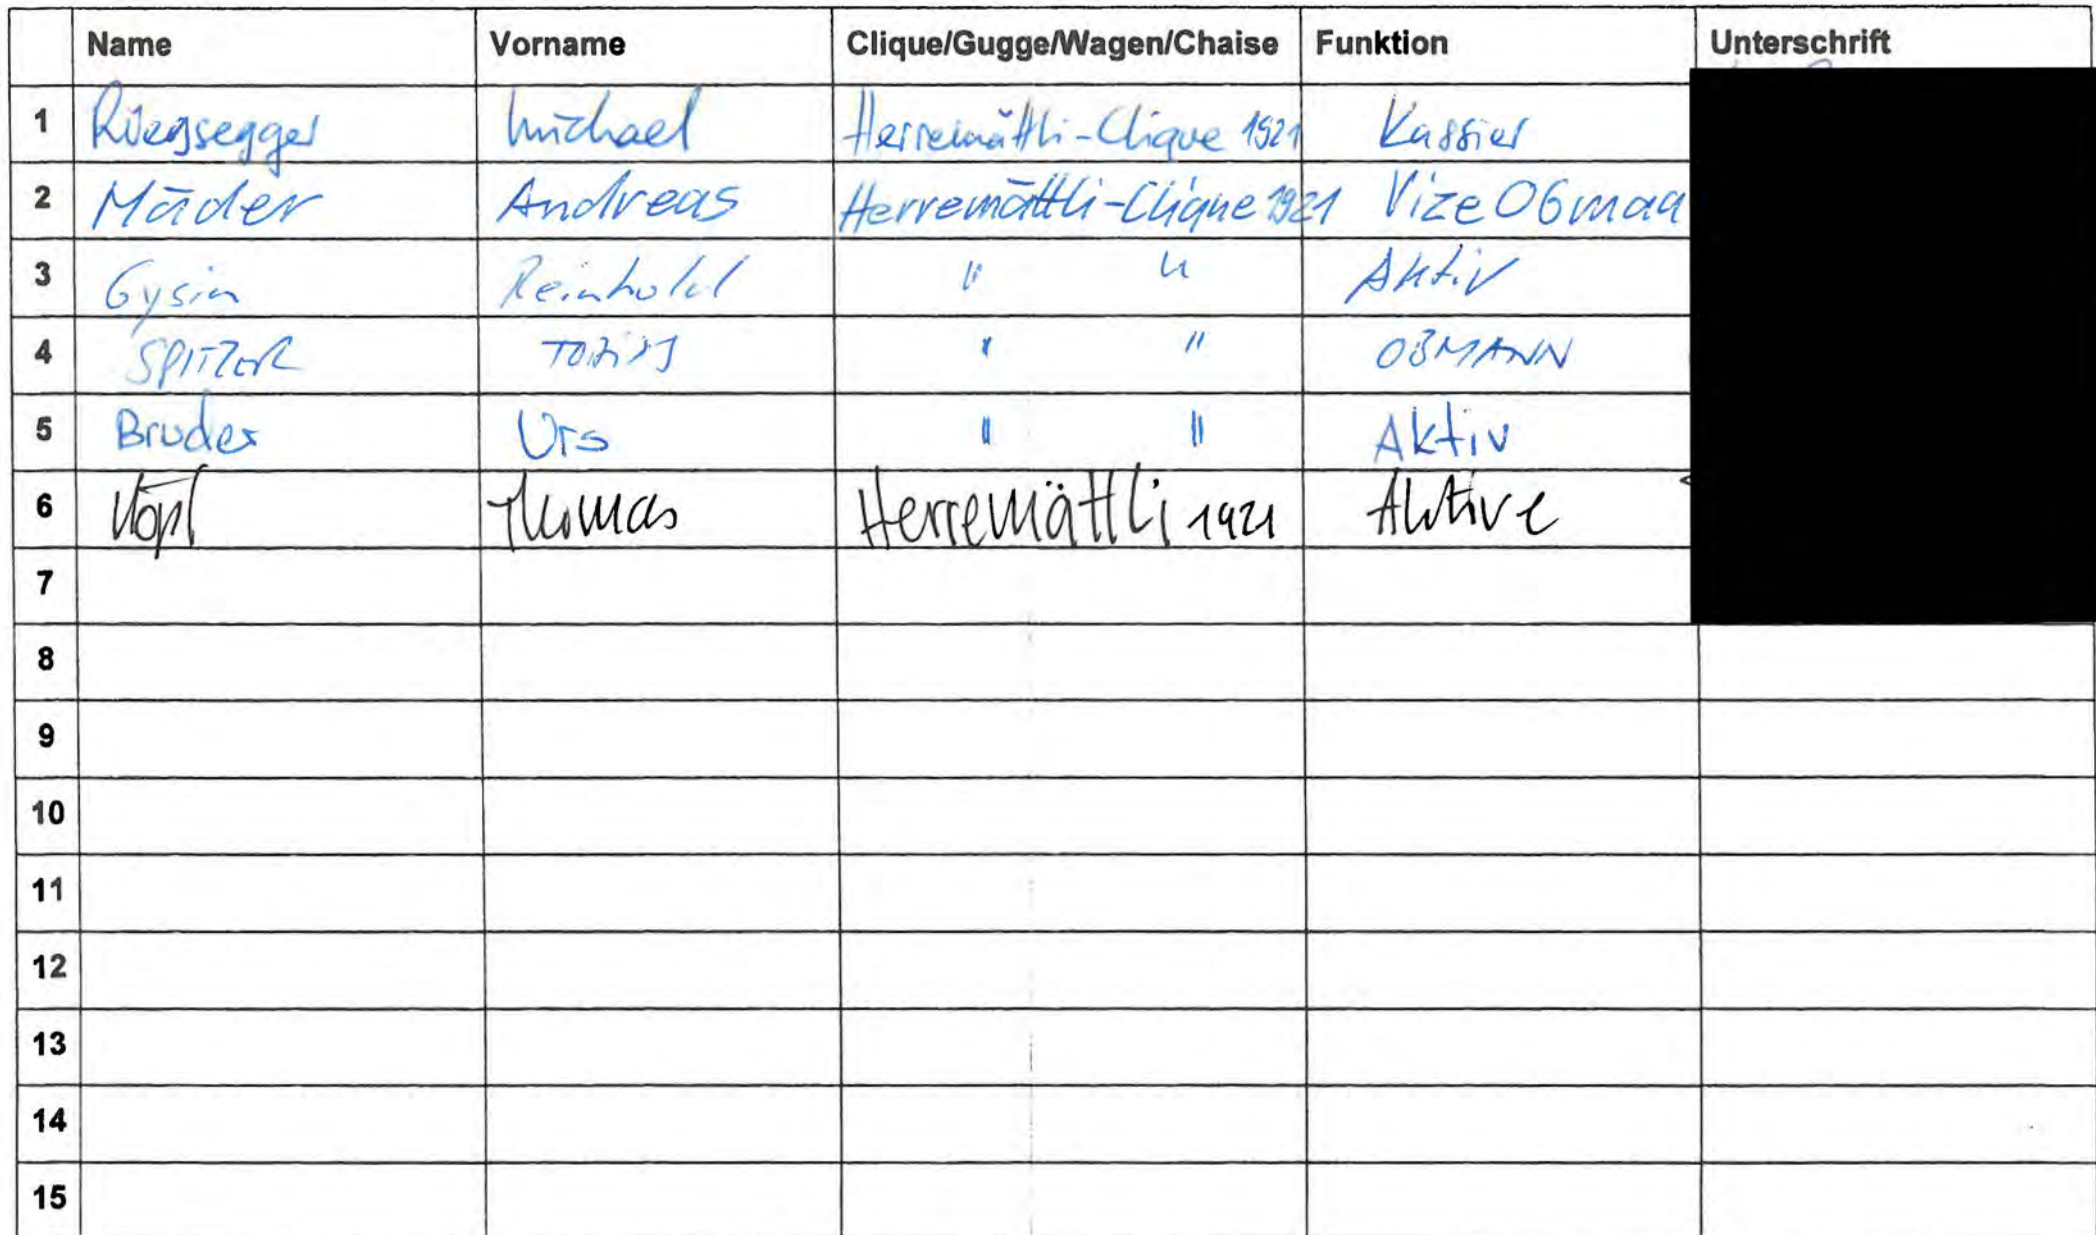 Name Vorname Clique/Gugge/Wagen/Chaise Funktion Unterschrift
1 Rüegsegger Michael Herremättli-Clique 1921 Kassier
2 Mäder Andreas Herremättli-Clique 1921 Vize Obmaa
3 Gysin Reinhold " " Aktiv
4 SPITZER TOBIAS " " OBMANN
5 Bruder Urs " " Aktiv
6 Thomas Herremättli 1921 Aktive
7
8
9
10
11
12
13
14
15